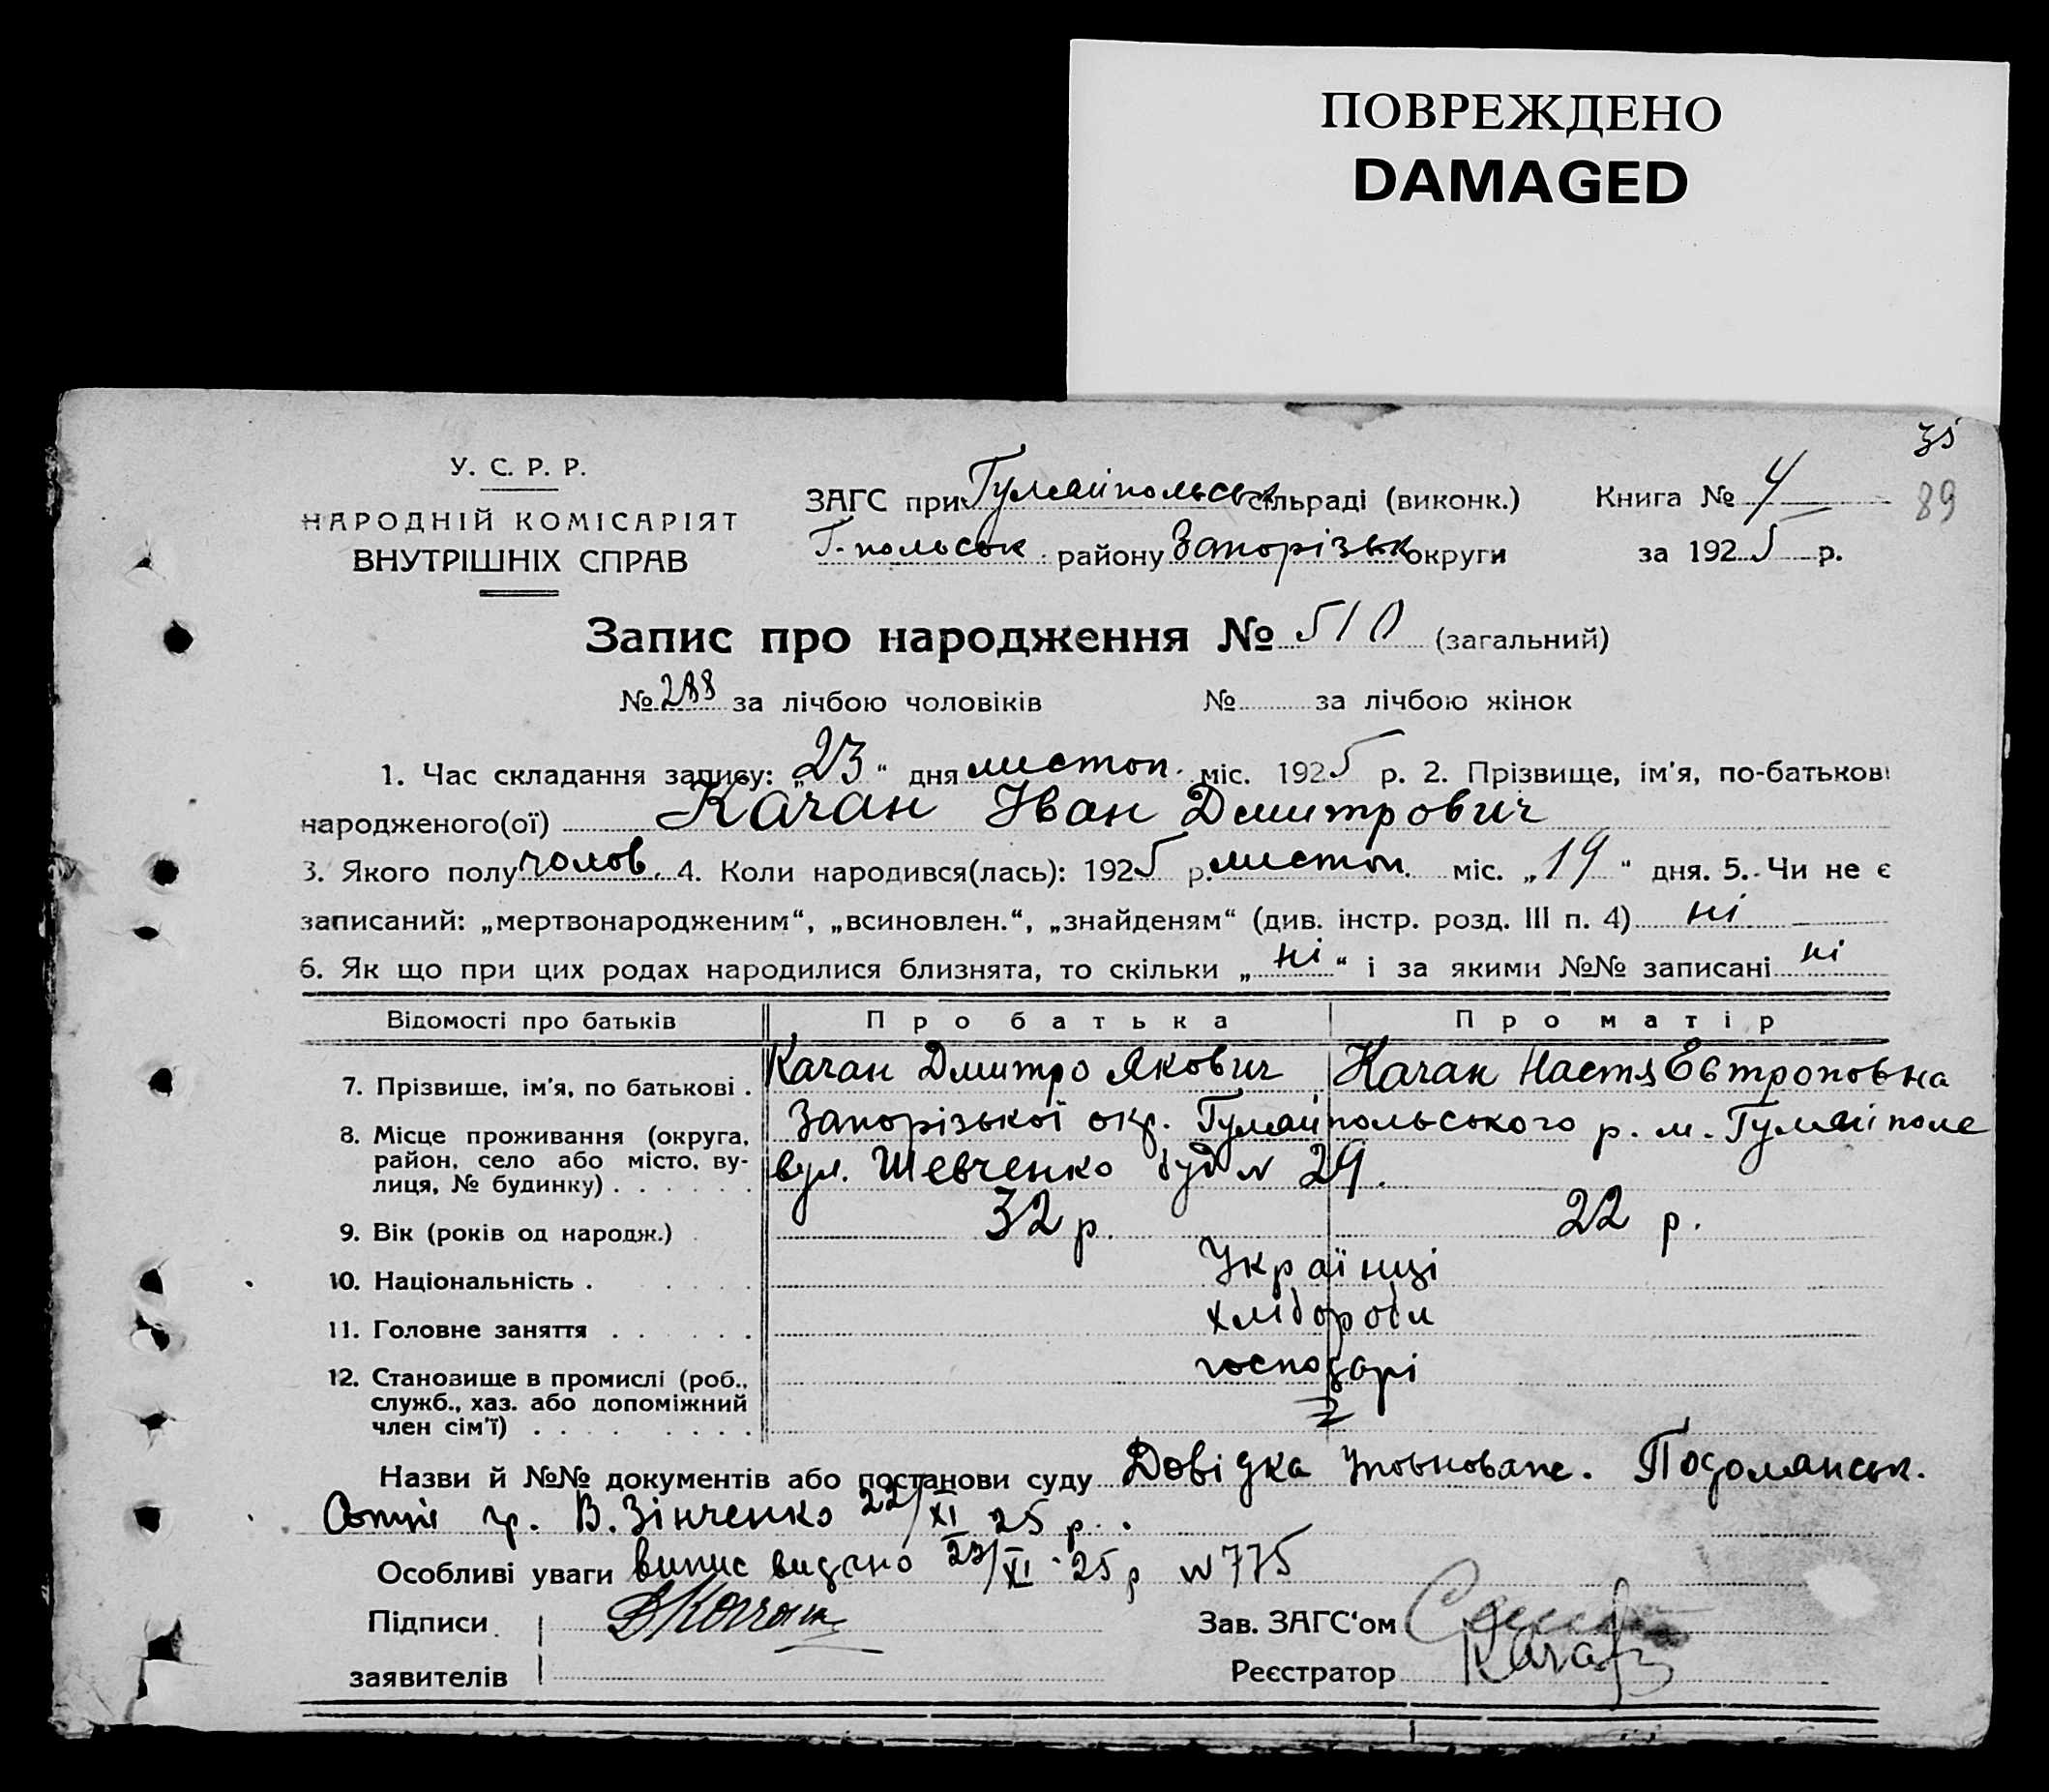 ПОВРЕЖДЕНО
DAMAGED
35
89
У. С. Р. Р.
НАРОДНІЙ КОМІСАРІЯТ
ВНУТРІШНІХ СПРАВ
ЗАГС при Гуляйпольськ сільраді (виконк.) Книга № 4
Г-польськ. району Запорізьк округи за 1925 р.
Запис про народження № 510 (загальний)
№ 288 за лічбою чоловіків № за лічбою жінок
1. Час складання запису: „23“ дня листоп. міс. 1925 р. 2. Прізвище, ім'я, по-батькові
народженого(ої) Качан Іван Дмитрович
3. Якого полу чолов. 4. Коли народився(лась): 1925 р. листоп. міс. „19“ дня. 5. Чи не є
записаний: „мертвонародженим“, „всиновлен.“, „знайденям“ (див. інстр. розд. III п. 4) ні
6. Як що при цих родах народилися близнята, то скільки „ні“ і за якими №№ записані ні
Відомості про батьків Про батька Про матір
7. Прізвище, ім'я, по батькові . Качан Дмитро Якович Качан Настя Евтроповна
8. Місце проживання (округа, район, село або місто, вулиця, № будинку) . . . . . . Запорізької окр. Гуляйпольського р. м. Гуляйполе
вул. Шевченко буд № 29.
9. Вік (років од народж.) 32 р. 22 р.
10. Національність . Українці
11. Головне заняття . . . . . . хлібороби
12. Становище в промислі (роб., служб., хаз. або допоміжний член сім'ї) . . . . господарі
Назви й №№ документів або постанови суду Довідка Уповноваже. Подолянськ.
Сотні гр. В. Зінченко 22/XI 25 р.
Особливі уваги випис видано 23/XI 25 р № 775
Підписи ДКачан Зав. ЗАГС'ом
заявителів Реєстратор